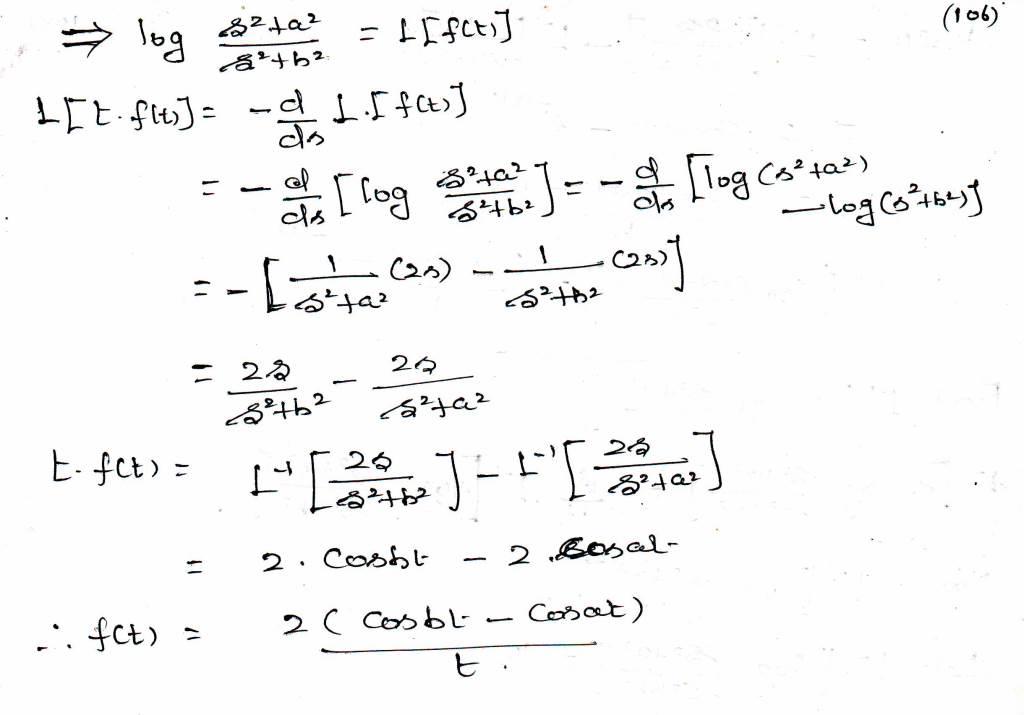 (106)
⇒ log (s²+a²)/(s²+b²) = L[f(t)]
L[t.f(t)] = -d/ds L.[f(t)]
= -d/ds [log (s²+a²)/(s²+b²)] = -d/ds [log (s²+a²) - log (s²+b²)]
= -[1/(s²+a²) (2s) - 1/(s²+b²) (2s)]
= 2s/(s²+b²) - 2s/(s²+a²)
t. f(t) = L⁻¹[2s/(s²+b²)] - L⁻¹[2s/(s²+a²)]
= 2. Cosbt - 2 .Cosat
∴ f(t) = 2 (Cosbt - Cosat)/t.